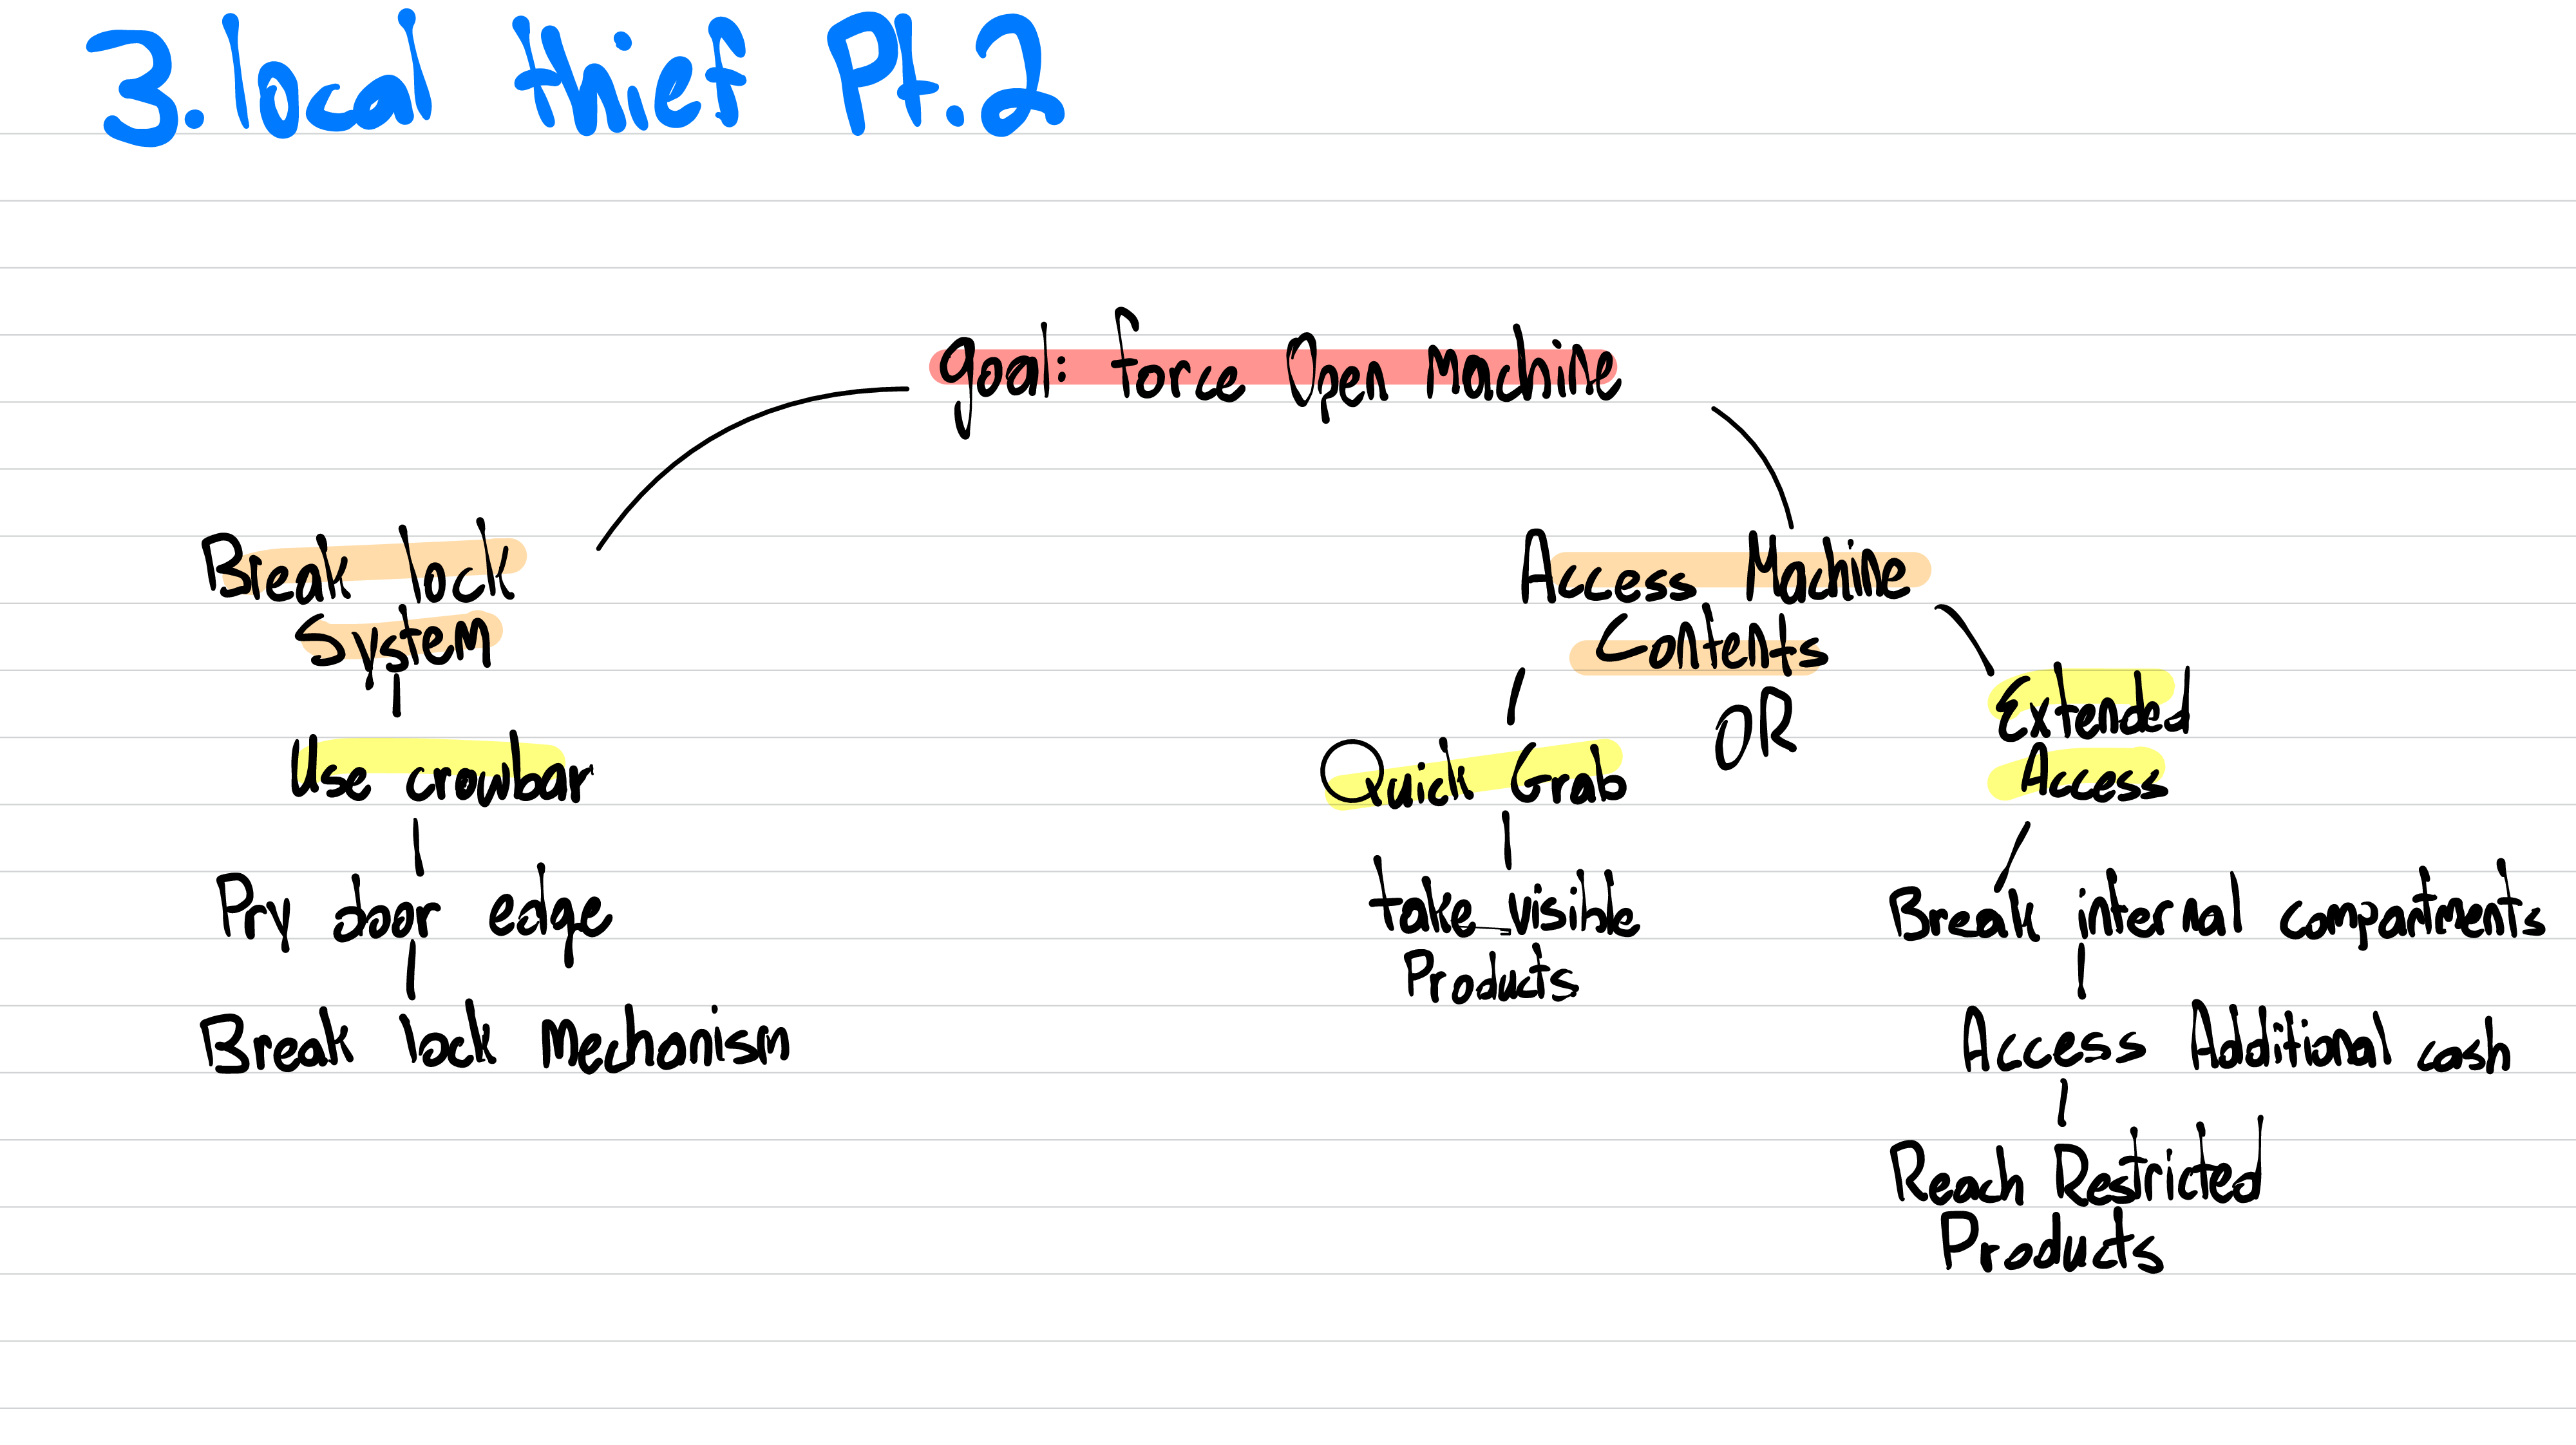 3. local thief Pt.2
goal: force Open Machine
Break lock
System
Use crowbar
Pry door edge
Break lock Mechanism
Access Machine
Contents
OR
Quick Grab
take visible
Products
Extended
Access
Break internal compartments
Access Additional cash
Reach Restricted
Products